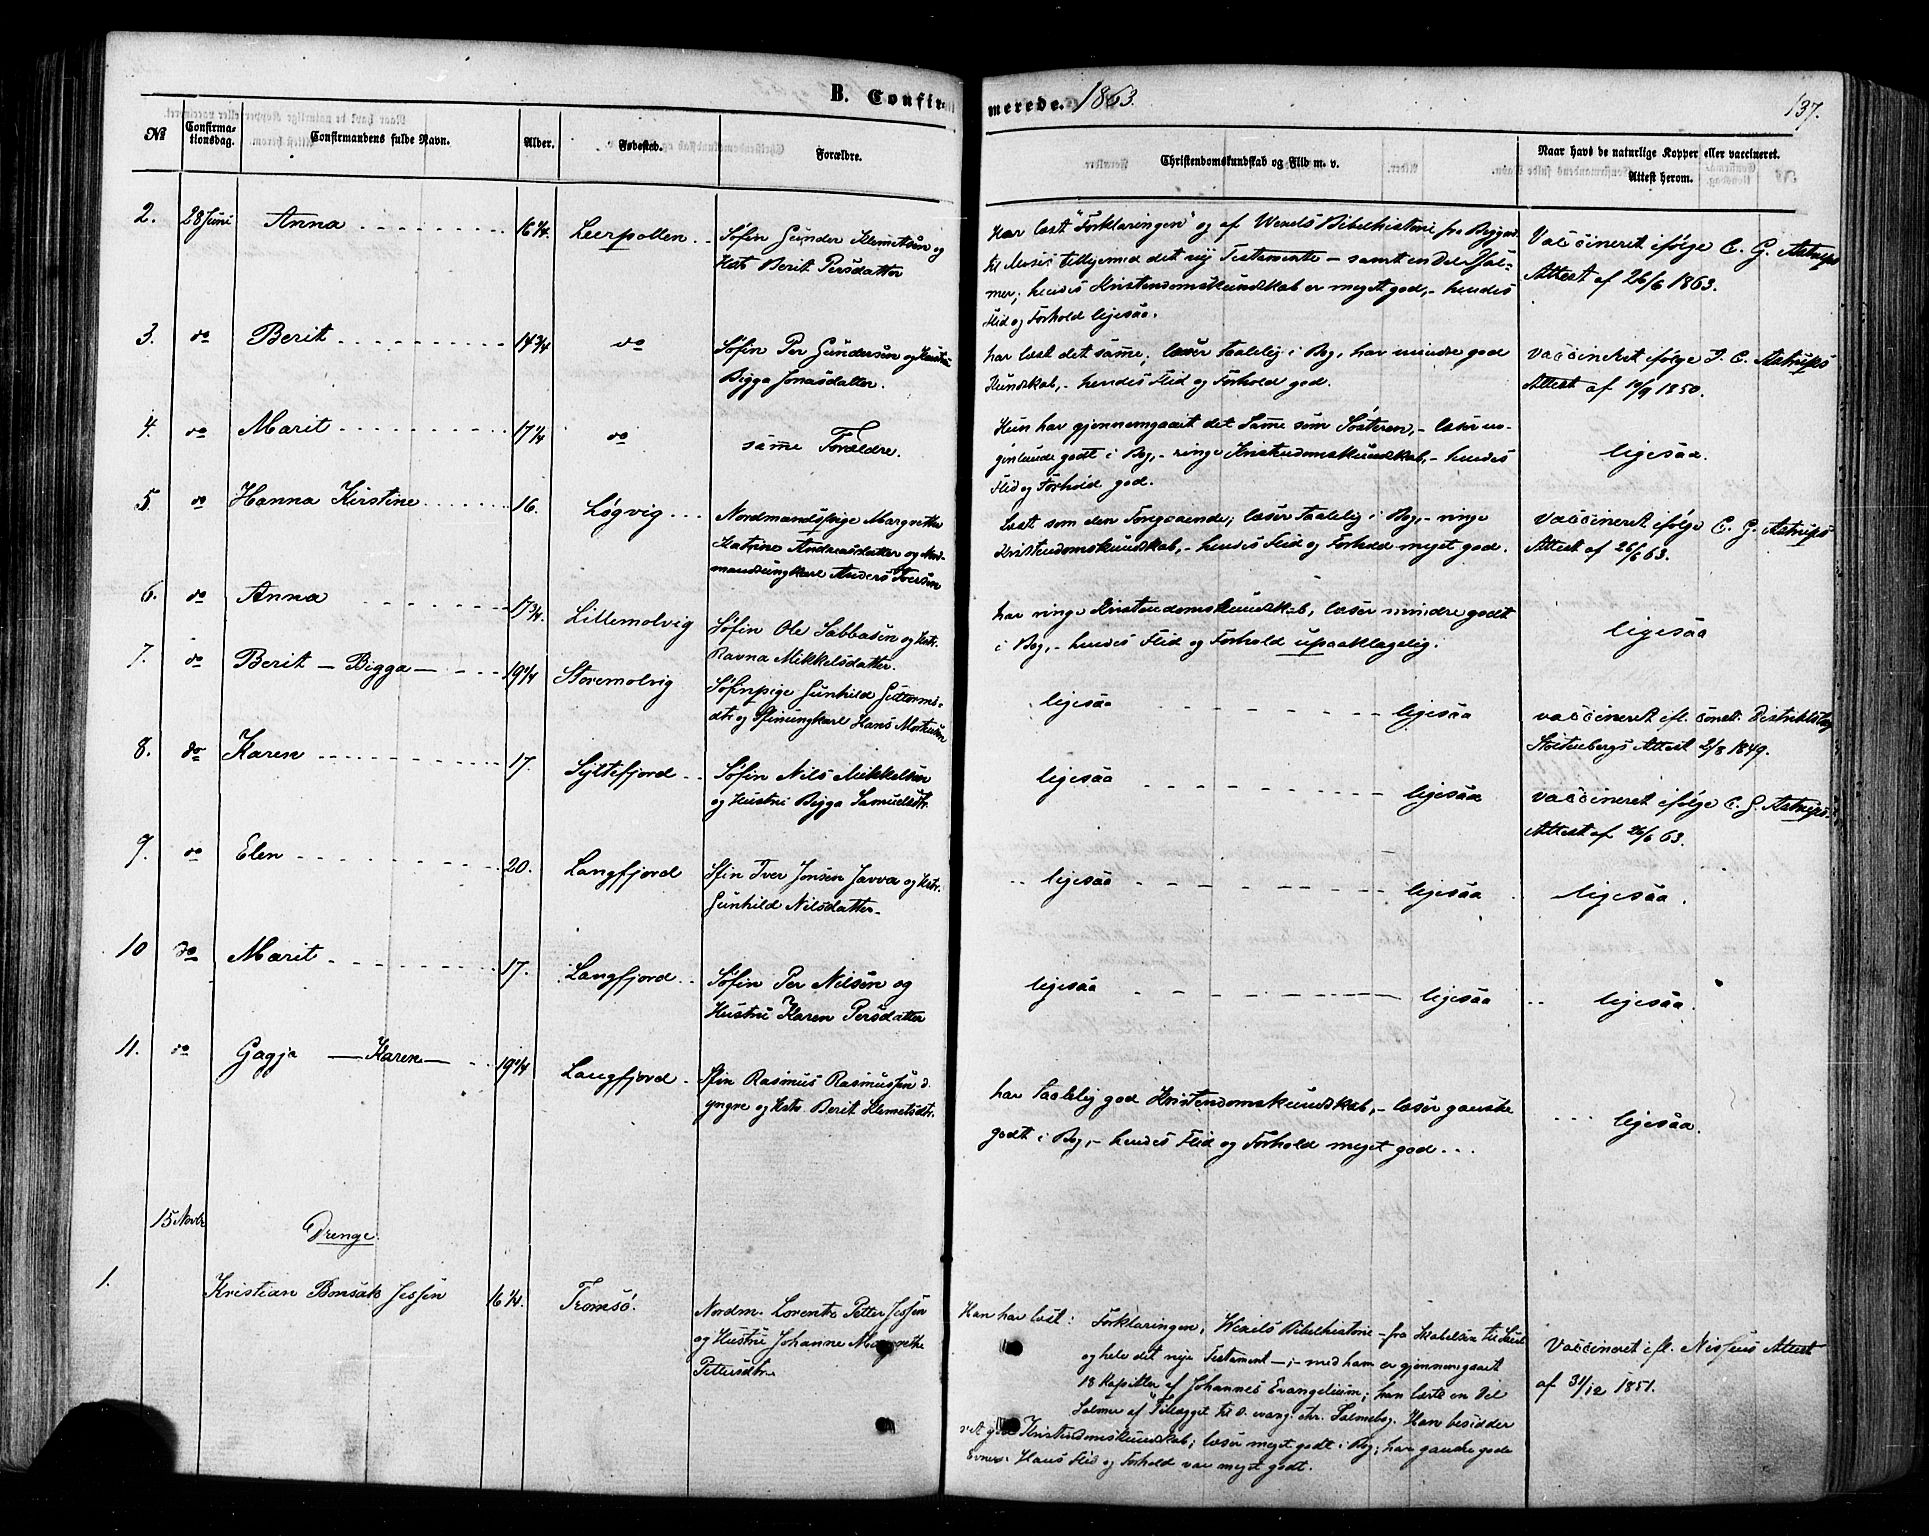 B. Confirmerede. 1863.
137.
No
Confirmationsdag.
Confirmandens fulde Navn.
Alder.
Fødested.
Forældre.
Christendomskundskab og Flid m. v.
Naar havt de naturlige Kopper eller vaccineret. Attest herom.
2. 28 Juni Anna 16 1/4. Leerpollen
Søfin Gunder Klemetsen og
Hstr Berit Persdatter
Har læst "Forklaringen" og af Wexels Bibelhistorie fra Begynd.
til Moses tilligemed det nye Testamente – samt en Del Psal-
mer; hendes Kristendomskundskab er meget god, – hendes
Flid og Forhold ligesaa.
Vaccineret ifølge C. G. Astrups
Attest af 26/6 1863.
3. do Berit 14 3/4 do
Søfin Per Gundersen og Hustru
Bigga Jonasdatter.
har læst det samme; læser taalelig i Bog, har mindre god
Kundskab, – hendes Flid og Forhold god.
vaccineret ifølge J. C. Astrups
Attest af 10/9 1850.
4. do Marit 17 1/4 do
samme Forældre.
Hun har gjennemgaaet det Samme som Søsteren, – læser no-
genlunde godt i Bog, – ringe Kristendomskundskab, – hendes
Flid og Forhold god.
ligesaa.
5. do Hanna Kirstine 16. Løgvig
Nordmandspige Margrethe
Katrine Andreasdatter og Nord-
mandsungkarl Anders Iversen
Læst som den Foregaaende; læser taalelig i Bog, – ringe
Kristendomskundskab, – hendes Flid og Forhold meget god.
vaccineret ifølge C. G. Astrups
Attest af 26/6 63.
6. do Anna 17 3/4. Lillemolvig
Søfin Ole Sabbasen og Hstr.
Ravna Mikkelsdatter.
har ringe Kristendomskundskab, læser mindre godt
i Bog, – hendes Flid og Forhold upaaklagelig.
ligesaa
7. do Berit – Bigga – 19 1/4 Storemolvig
Søfinpige Gunhild Guttorms-
dtr og Finungkarl Hans Mortensen
ligesaa ligesaa
vaccineret ifl. const. Distriktslæg
Stoltenbergs Attest 2/8 1849.
8. do Karen 17. Syltefjord
Søfin Nils Mikkelsen
og Hustru Bigga Samuelsdtr.
ligesaa ligesaa
vaccineret ifølge C. G. Astrups
Attest af 26/6 63.
9. do Elen 20. Langfjord
Sfin Iver Jonsen Javva og Hstr.
Gunhild Nilsdatter.
ligesaa ligesaa
ligesaa.
10 do Marit 17. Langfjord
Søfin Per Nilsen og
Hustru Karen Persdatter
ligesaa ligesaa
ligesaa.
11. do Gagja – Karen – 19 1/4 Langfjord
Sfin Rasmus Rasmussen d.
yngre og Hstr. Berit Klemetsdtr.
har taalelig god Kristendomskundskab, – læser ganske
godt i Bog, – hendes Flid og Forhold meget god
ligesaa.
15 Novbr
Drenge.
1. Kristian Bonsak Jessen 16 1/4. Tromsø.
Nordm. Lorents Petter Jessen
og Hustru Johanne Margrethe
Pettersdtr.
Han har læst: Forklaringen, Wexels Bibelhistorie – fra Skabelsen til
og hele det neje Testament –; – med ham er gjennemgaaet
18 Kapitler af Johannes Evangelium; han lærte en Del
Salmer af Tillægget til d. evang. chr. Salmebog. Han besidder
Kristendomskundskab; læser meget godt i Bog; har ganske gode
Evner. Hans Flid og Forhold var meget godt.
Vaccineret ifl. Attest
af 31/12 1851.